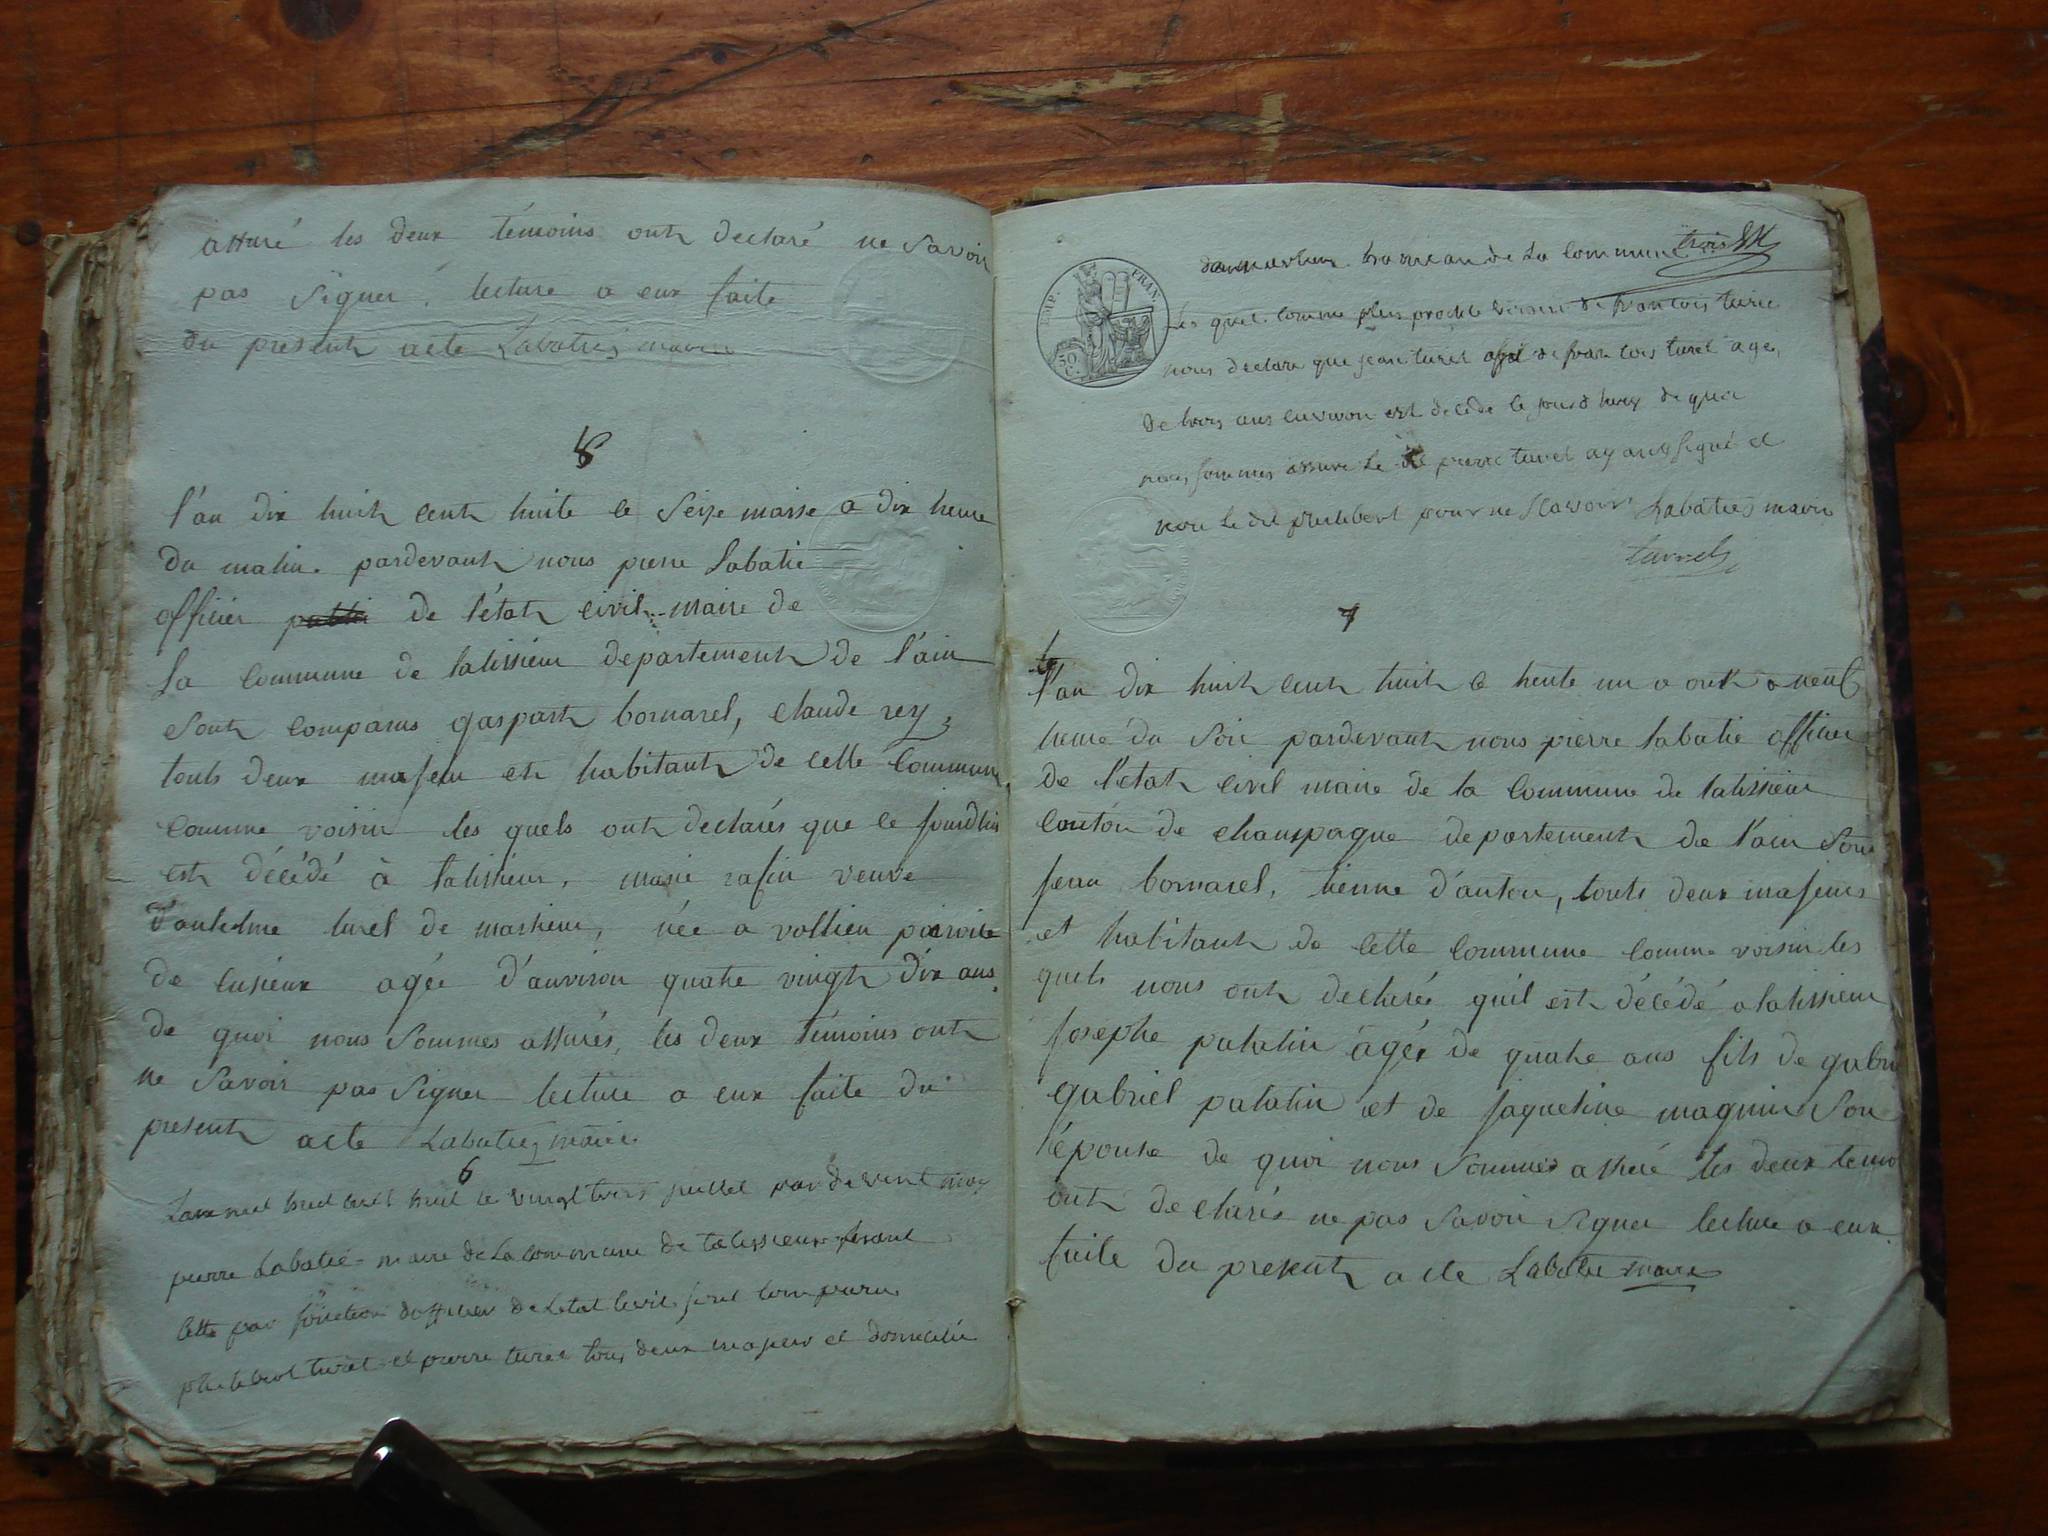 assuré les deux témoins ont declaré ne savoir
pas signer, lecture a eux faite
du present acte Labatie maire
l'an dix huit cent huite le seize marse a dix heure
du matin. pardevant nous piere Labatie
officier de l'état civil maire de
la commune de talissieu departement de l'ain
sont comparus gaspart bornarel, claude rey
touts deux majeur et habitant de cette commune
comme voisin les quels ont declarés que ce jourdhui
est décédé à talissieu, marie rafin veuve
d'antelme turel de massieu, née a vollien paroisse
de lusieux agée d'anviron quatre vingt dix ans
de quoi nous sommes assurés, les deux témoins ont
ne savoir pas signer lecture a eux faite du
present acte Labatie maire
6
Lan mil huit cent huit le vingt trois juillet par devent nous
pierre Labatié maire de La commune de talissieux fesant
cette par fonction dofficier de Letat civil sont comparu
philibert turel et pierre turel tous deux majeur et domicilié
hameau de La commune
trois
EMP. FRAN.
50 C.
Les quel comme plus proche voisin de francois turel
nous declare que jean turel de francois turel age
de trois ans environ est décédé le jourdhuy de quoi
nous sommes assuré Le dit pierre turel ayant signé et
non Le dit philibert pour ne scavoir Labatie maire
turrel
7
l'an dix huit cent huit le trente un a out a neuf
heure du soir pardevant nous pierre labatie officier
de l'etat civil maire de la commune de talissieu
conton de champagne departement de l'ain sont
jean bornarel, tienne d'anton, touts deux majeurs
et habitant de cette commune comme voisin les
quels nous ont declarés quil est décédé a talissieu
josephe palatin âgée de quatre ans fils de gabri
gabriel palatin et de jaqueline magnin son
épouse de quoi nous sommes assuré les deux temo
ont declarés ne pas savoir signer lecture a eux
faite du present acte Labatie maire